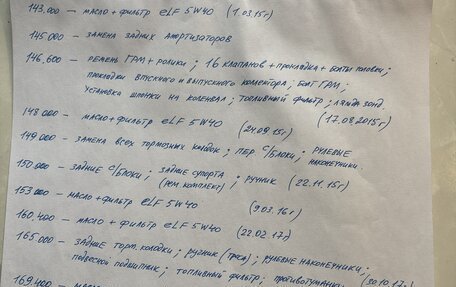 143.000 — масло + фильтр eLF 5W40 (1.03.15г)
145.000 — замена задних амортизаторов
146.600 — ремень ГРМ + ролики; 16 клапанов + прокладка + болты головки;
прокладки впускного и выпускного коллектора; болт ГРМ;
установка шпонки на коленвал; топливный фильтр; лямда зонд.
(17.08.2015г)
148.000 — масло + фильтр eLF 5W40 (24.09.15г)
149.000 — замена всех тормозных колодок; пер с/блоки; рулевые
наконечники.
150.000 — задние с/блоки; задние супорта; ручник (22.11.15г)
(рем комплект)
153.000 — масло + фильтр eLF 5W40 9.03.16г)
160.400 — масло + фильтр eLF 5W40 (22.02.17г)
165.000 — задние торм. колодки; ручник (троса); рулевые наконечники;
подвесной подшипник; топливный фильтр; противотуманки (30.10.17г)
169.400